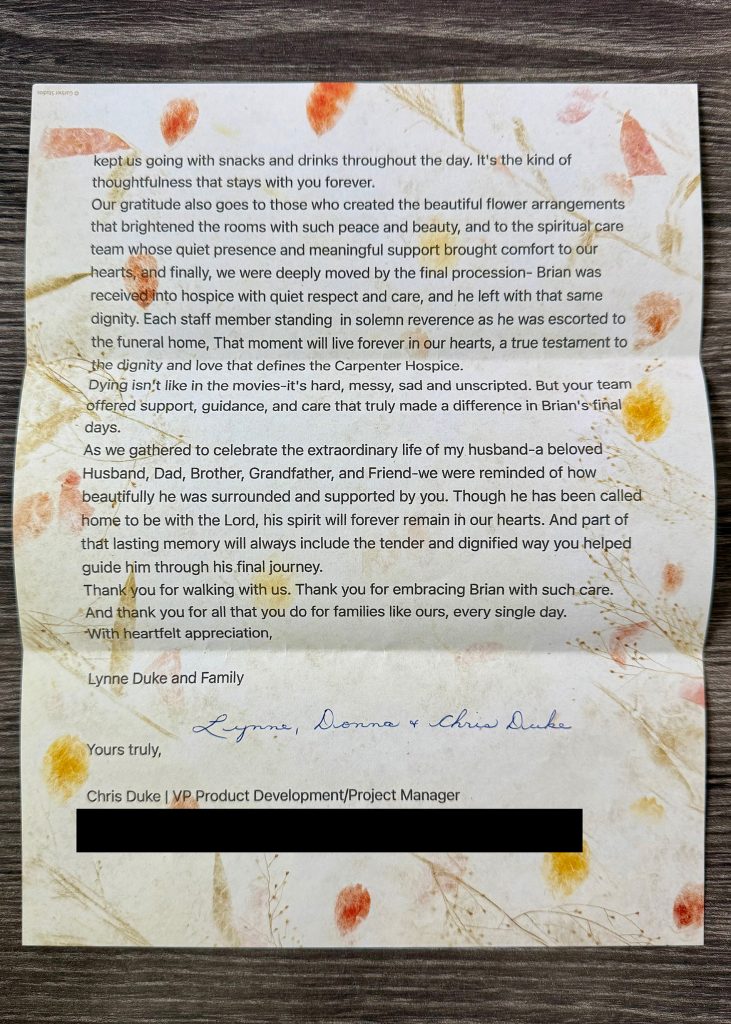 © Gartner Studios
kept us going with snacks and drinks throughout the day. It's the kind of
thoughtfulness that stays with you forever.
Our gratitude also goes to those who created the beautiful flower arrangements
that brightened the rooms with such peace and beauty, and to the spiritual care
team whose quiet presence and meaningful support brought comfort to our
hearts, and finally, we were deeply moved by the final procession- Brian was
received into hospice with quiet respect and care, and he left with that same
dignity. Each staff member standing in solemn reverence as he was escorted to
the funeral home, That moment will live forever in our hearts, a true testament to
the dignity and love that defines the Carpenter Hospice.
Dying isn't like in the movies-it's hard, messy, sad and unscripted. But your team
offered support, guidance, and care that truly made a difference in Brian's final
days.
As we gathered to celebrate the extraordinary life of my husband-a beloved
Husband, Dad, Brother, Grandfather, and Friend-we were reminded of how
beautifully he was surrounded and supported by you. Though he has been called
home to be with the Lord, his spirit will forever remain in our hearts. And part of
that lasting memory will always include the tender and dignified way you helped
guide him through his final journey.
Thank you for walking with us. Thank you for embracing Brian with such care.
And thank you for all that you do for families like ours, every single day.
With heartfelt appreciation,
Lynne Duke and Family
Lynne, Donna + Chris Duke
Yours truly,
Chris Duke | VP Product Development/Project Manager